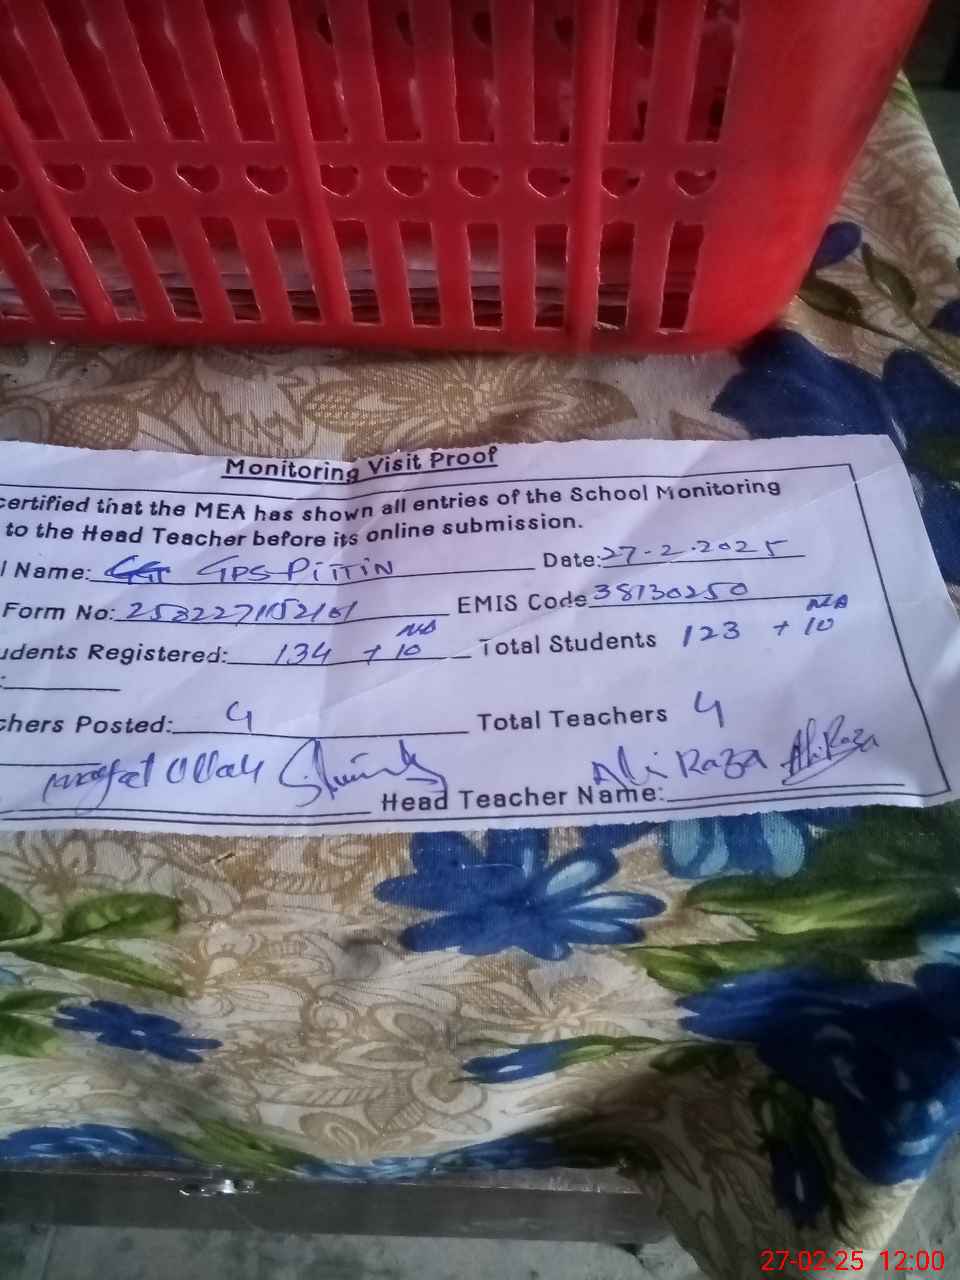 Monitoring Visit Proof
certified that the MEA has shown all entries of the School Monitoring
to the Head Teacher before its online submission.
l Name: GPS PITTIN Date: 27-2-2025
Form No: EMIS Code 38130250
udents Registered: 134 + 10 NA Total Students 123 + 10 NA
:
chers Posted: 4 Total Teachers 4
Ullah Ali Raza Ali Raza
Head Teacher Name:
27-02-25 12:00